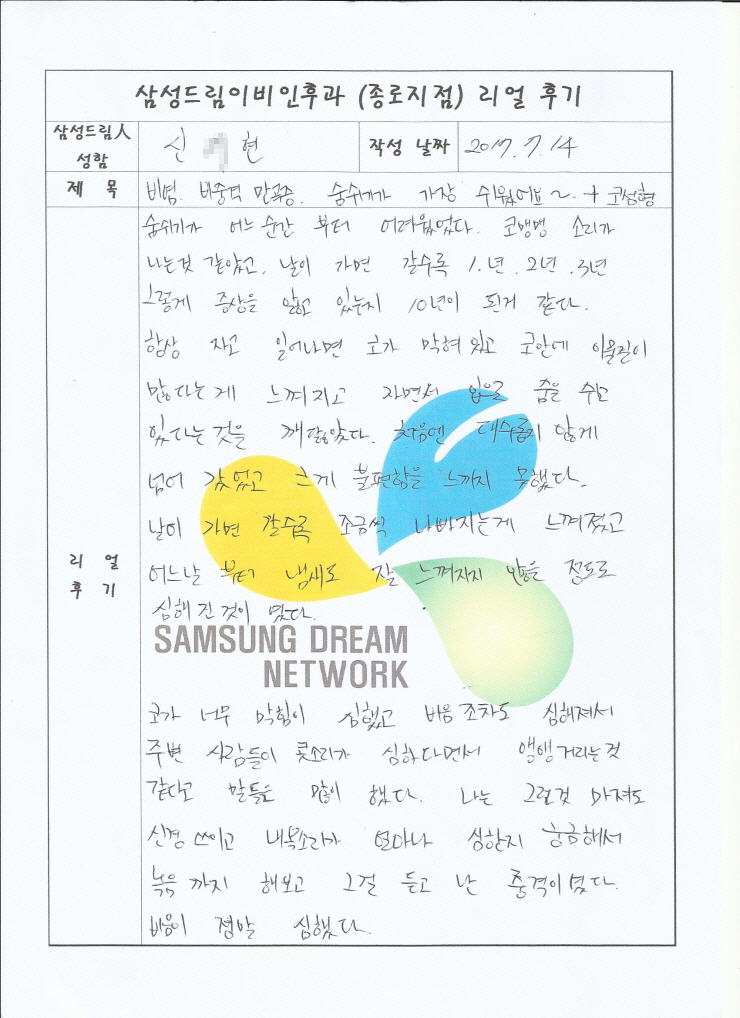 삼성드림이비인후과 (종로지점) 리얼 후기
삼성드림人 성함 신 현 작성 날짜 2017.7.14
제 목 비염. 비중격 만곡증. 숨쉬기가 가장 쉬웠어요~. + 코성형
리 얼 후 기
숨쉬기가 어느 순간 부터 어려웠었다. 코맹맹 소리가
나는것 같았고, 날이 가면 갈수록 1.년 .2년 .3년
그렇게 증상을 앓고 있는지 10년이 된거 같다.
항상 자고 일어나면 코가 막혀 있고 코안에 이물질이
많다는게 느껴지고 자면서 입으로 숨을 쉬고
있다는것을 깨달았다. 처음엔 대수롭지 않게
넘어 갔었고 크게 불편함을 느끼지 못했다.
날이 가면 갈수록 조금씩 나빠지는게 느껴졌고
어느날 부터 냄새도 잘 느껴지지 않을 정도로
심해 진 것이 였다.
SAMSUNG DREAM
NETWORK
코가 너무 막힘이 심했고 비음 조차도 심해져서
주변 사람들이 콧소리가 심하다면서 앵앵거리는것
같다고 말들을 많이 했다. 나는 그런것 마져도
신경 쓰이고 내목소리가 얼마나 심한지 궁금해서
녹음 까지 해보고 그걸 듣고 난 충격이였다.
비음이 정말 심했다.